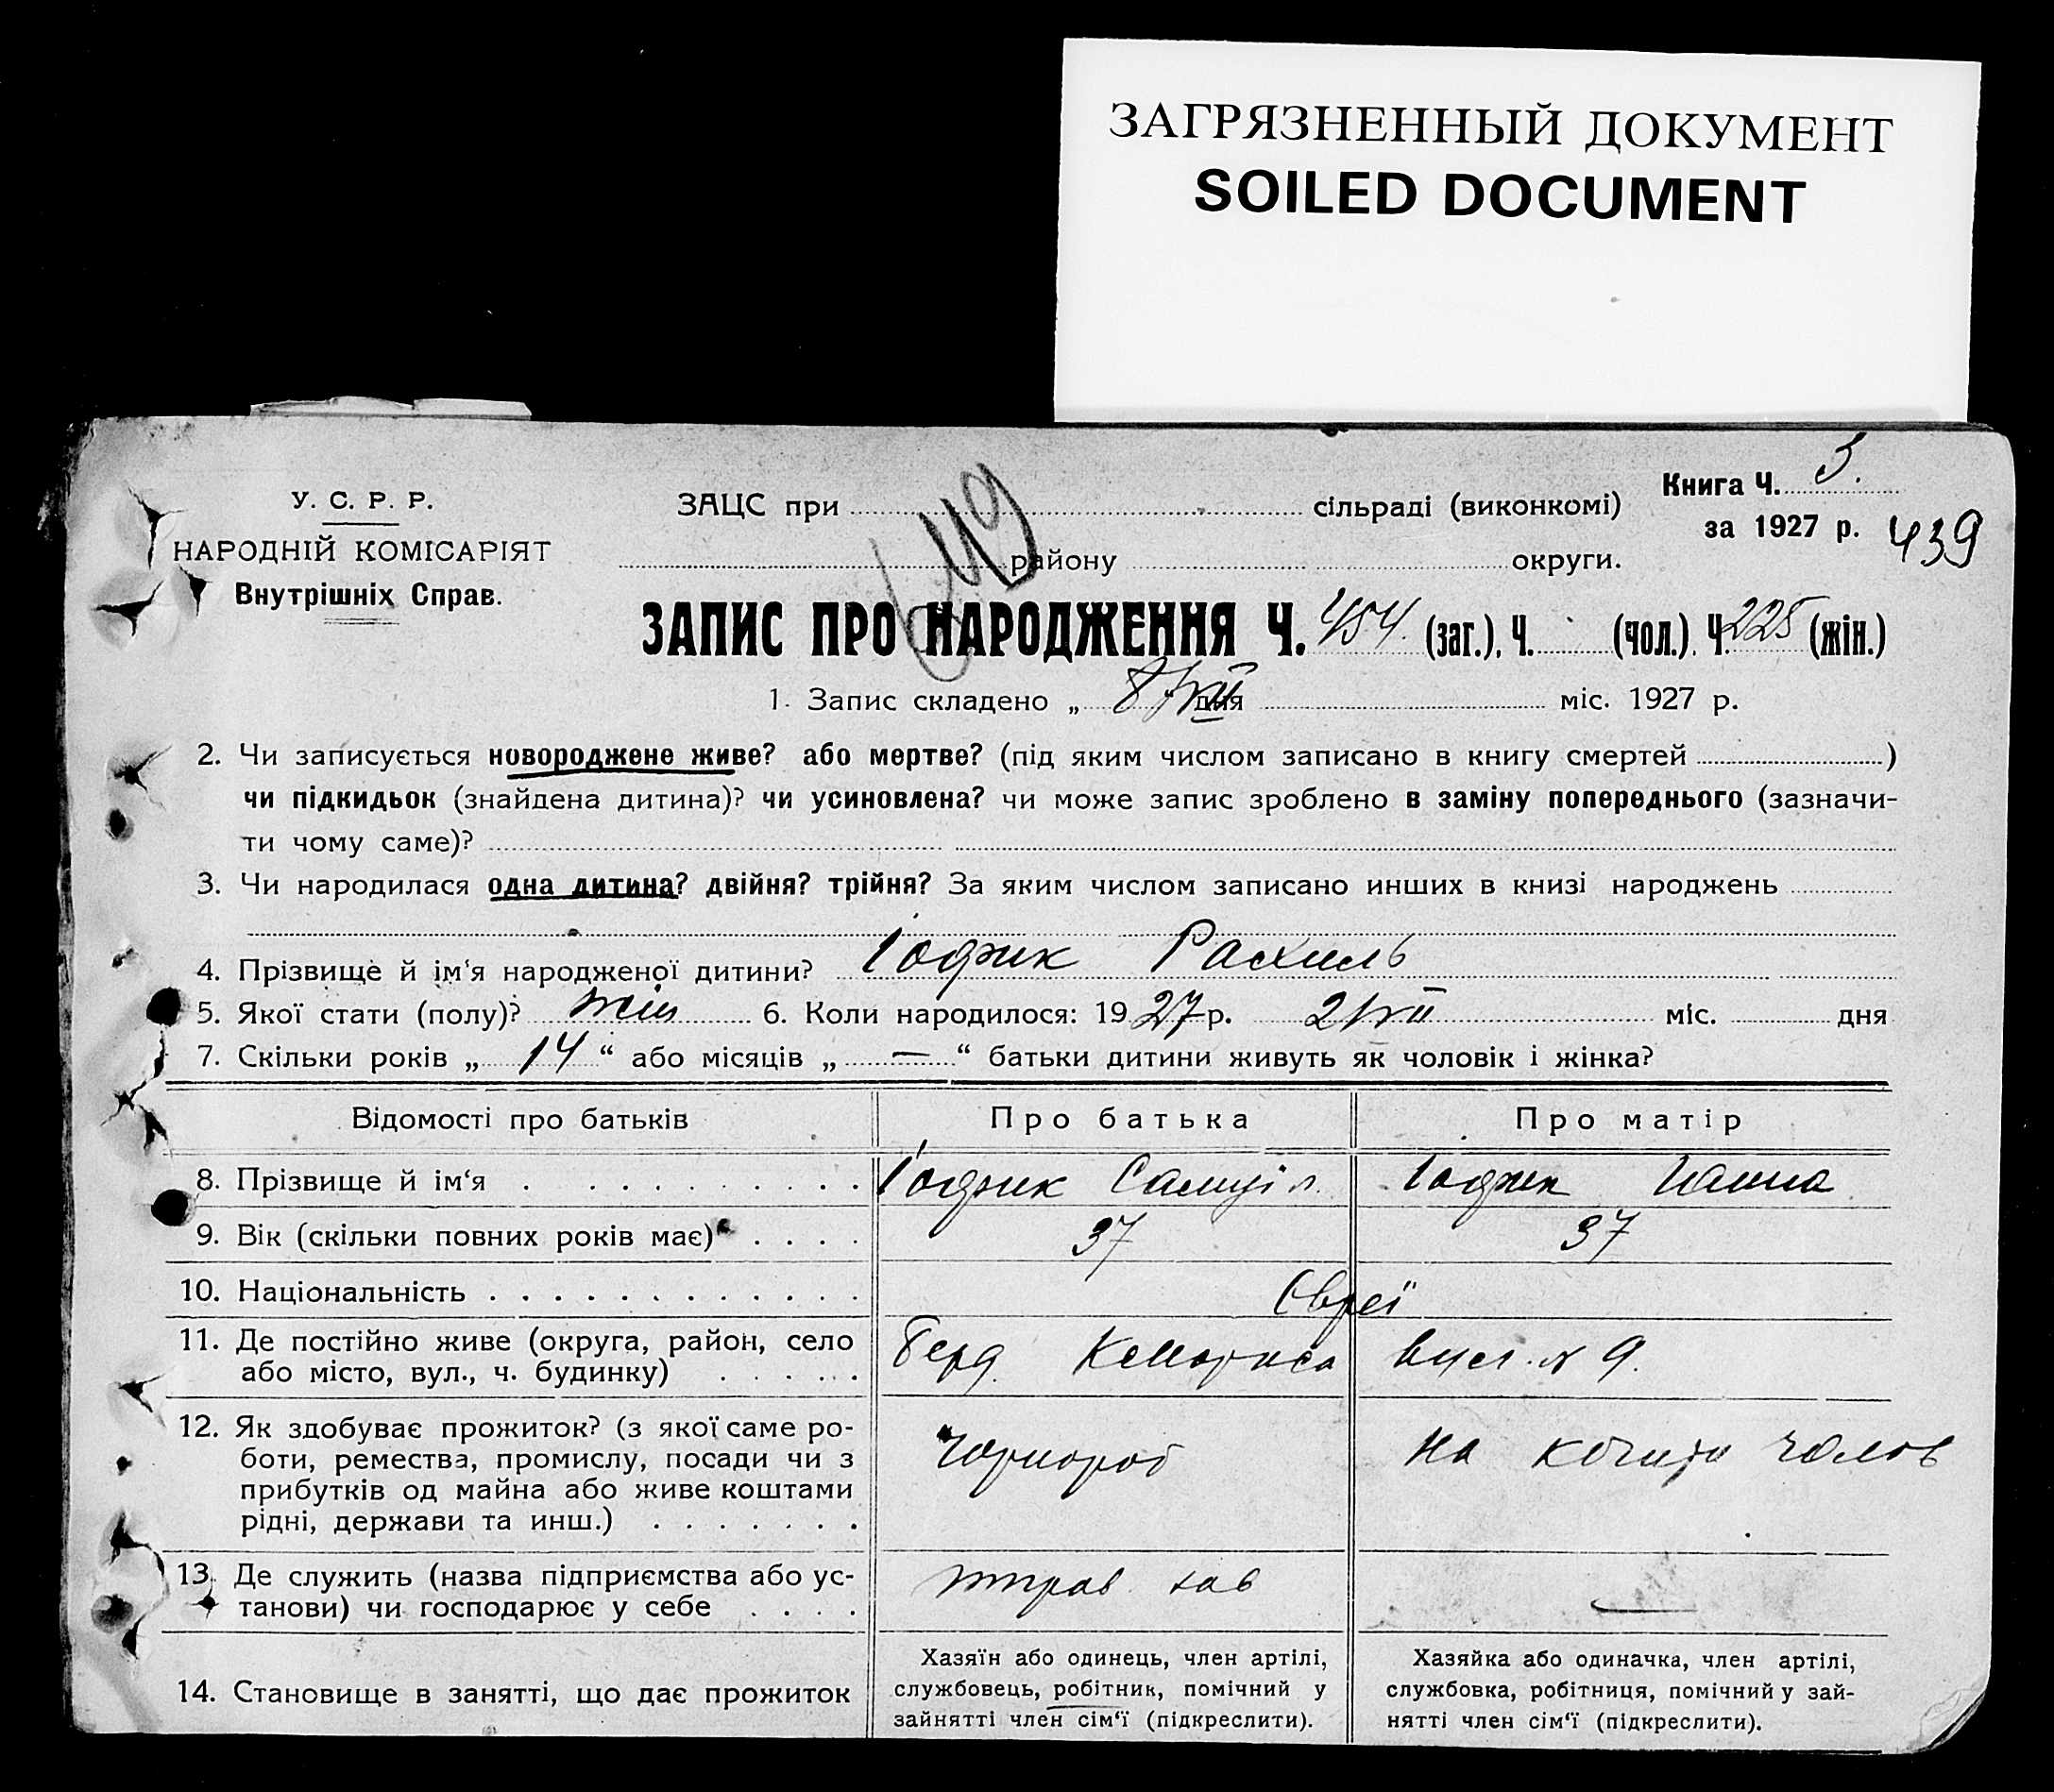 ЗАГРЯЗНЕННЫЙ ДОКУМЕНТ
SOILED DOCUMENT
У. С. Р. Р.
НАРОДНІЙ КОМІСАРІЯТ
Внутрішніх Справ.
ЗАЦС при сільраді (виконкомі)
району округи.
Книга Ч. 3.
за 1927 р. 439
ЗАПИС ПРО НАРОДЖЕННЯ Ч. 454 (заг.), Ч. (чол.). Ч. 225 (жін.)
1. Запис складено „ 8/VII дня міс. 1927 р.
2. Чи записується новороджене живе? або мертве? (під яким числом записано в книгу смертей )
чи підкидьок (знайдена дитина)? чи усиновлена? чи може запис зроблено в заміну попереднього (зазначи-
ти чому саме)?
3. Чи народилася одна дитина? двійня? трійня? За яким числом записано инших в книзі народжень
4. Прізвище й ім‘я народженої дитини? Рахиль
5. Якої стати (полу)? жін 6. Коли народилося: 1927 р. 2/VII міс. дня
7. Скільки років „ 14 “ або місяців „ — “ батьки дитини живуть як чоловік і жінка?
Відомості про батьків Про батька Про матір
8. Прізвище й ім‘я Самуіл
9. Вік (скільки повних років має) 37 37
10. Національність Євреї
11. Де постійно живе (округа, район, село
або місто, вул., ч. будинку) Берд. № 9.
12. Як здобуває прожиток? (з якої саме ро-
боти, ремества, промислу, посади чи з
прибутків од майна або живе коштами
рідні, держави та инш.) Чорнороб На чолов
13. Де служить (назва підприємства або ус-
танови) чи господарює у себе зав —
14. Становище в занятті, що дає прожиток
Хазяїн або одинець, член артілі,
службовець, робітник, помічний у
зайнятті член сім‘ї (підкреслити).
Хазяйка або одиначка, член артілі,
службовка, робітниця, помічний у зай-
нятті член сім‘ї (підкреслити).